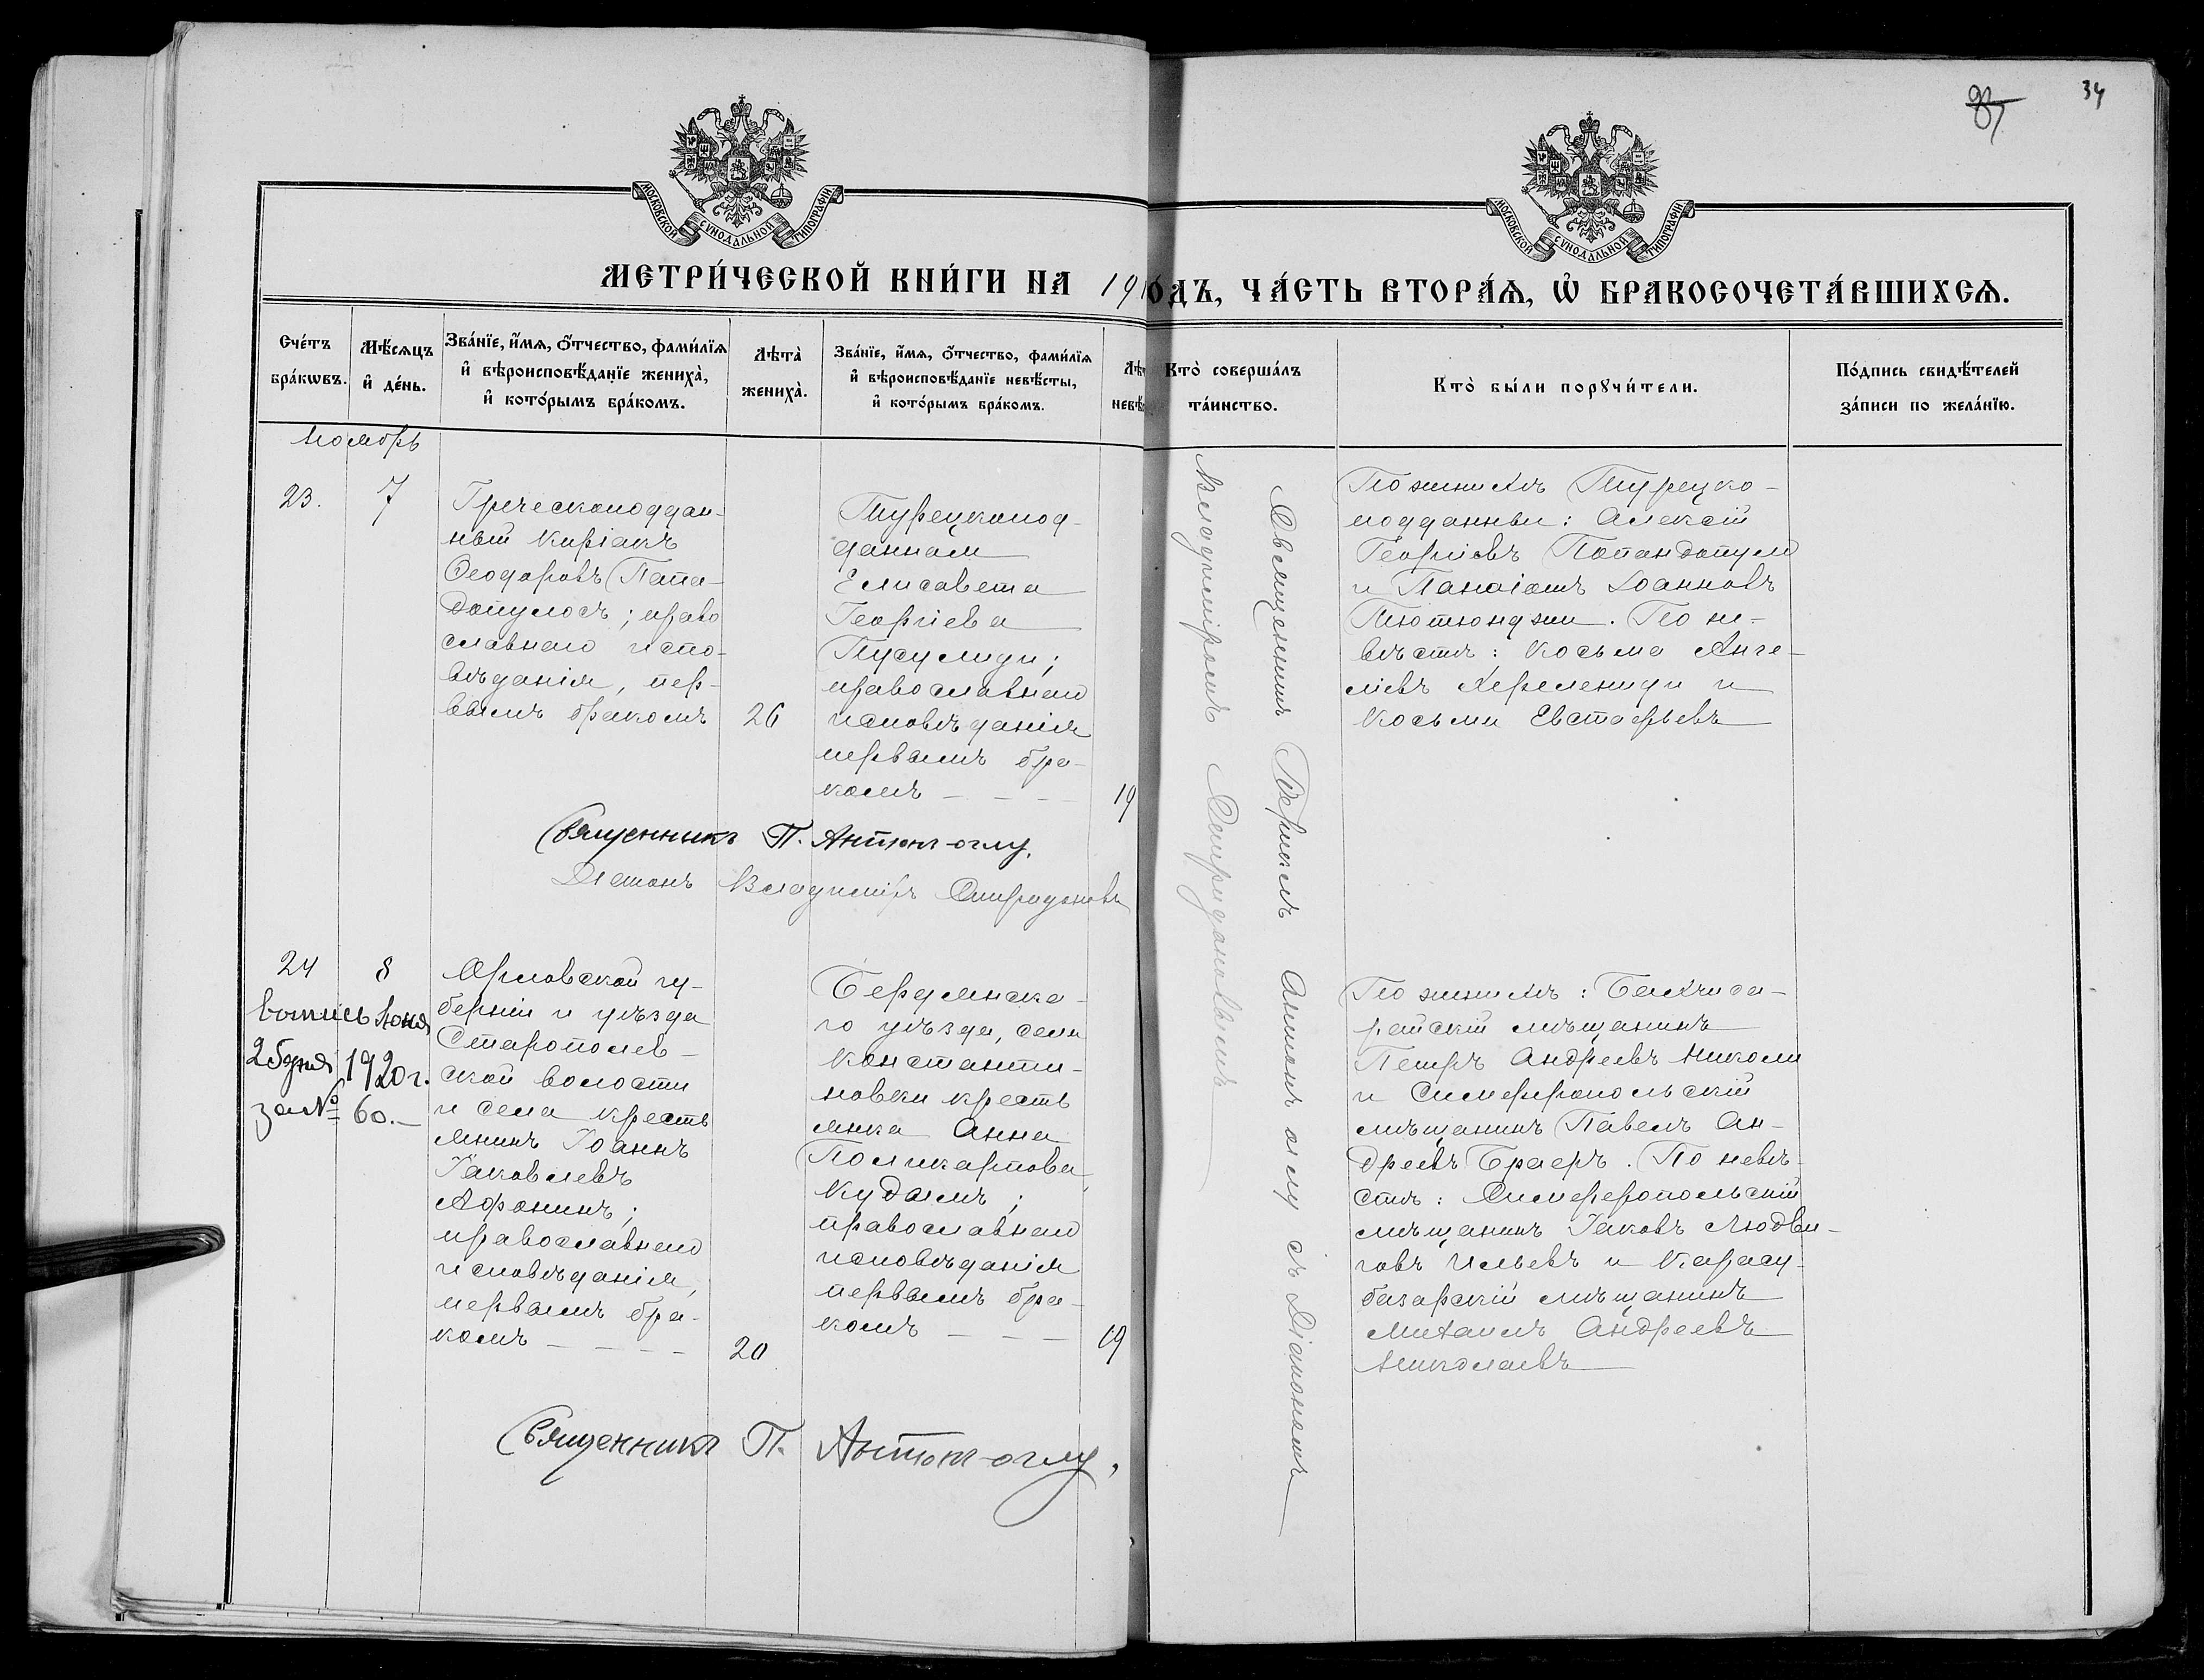 34
МОСКОВСКОЙ СѴНОДАЛЬНОЙ ТИПОГРАФІИ
МОСКОВСКОЙ СѴНОДАЛЬНОЙ ТИПОГРАФІИ
МЕТРИ́ЧЕСКОЙ КНИ́ГИ НА 191
ОДЪ, ЧА́СТЬ ВТОРА́Ѧ, Ѡ҆ БРАКОСОЧЕТА́ВШИХСѦ.
Сче́тъ бра́кѡвъ.
Мѣ́сѧцъ и҆ де́нь.
Зва́нїе, и҆́мѧ, ѻ҆́тчество, фами́лїѧ и҆ вѣроисповѣ́данїе жениха̀, и҆ кото́рымъ бра́комъ.
Лѣта̀ жениха̀.
Зва́нїе, и҆́мѧ, ѻ҆́тчество, фами́лїѧ и҆ вѣроисповѣ́данїе невѣ́сты, и҆ кото́рымъ бра́комъ.
Лѣт невѣ
Кто̀ соверша́лъ та́инство.
Кто̀ бы́ли порꙋчи́тели.
По́дпись свидѣ́телей за́писи по жела́нїю.
Ноябрь
23.
7
Греческоподдан-
ный Киріакъ
Ѳеодоровъ Папа-
допулосъ; право
славнаго испо-
вѣданія, пер-
вымъ бракомъ
26
Турецкопод-
данная
Елисавета
Георгіева
Тусулиди;
православнаго
исповѣданія
первымъ бра-
комъ - - -
19
Священникъ П. Антон-оглу.
Діаконъ Владиміръ Спиридоновъ
Священникъ Периклъ Антонъ оглу съ Діакономъ
Владиміромъ Спиридоновымъ
По женихѣ Турецко-
подданные: Алексій
Георгіевъ Попандопуло
и Панаіотъ Іоанновъ
Тютюнджи. По не-
вѣстѣ: Косьма Анге-
ліевъ Келемениди и
Косьма Евстафьевъ
24
8
выпись Іюня
25 дня 1920 г.
за № 60.-
Орловской гу-
берніи и уѣзда
Старополев-
ской волости
и села кресть
янинъ Іоаннъ
Іаковлевъ
Афонинъ;
православнаго
исповѣданія,
первымъ бра-
комъ - - - -
20
Бердянска-
го уѣзда, села
Константи-
новки кресть
янка Анна
Поликарпова
Кудымъ;
православнаго
исповѣданія
первымъ бра-
комъ - - -
19
Священникъ П. Антон-оглу,
По женихѣ: Бахчиса-
райскій мѣщанинъ
Петръ Андреевъ Никола
и Симферопольскій
мѣщанинъ Павелъ Ан-
дреевъ Браеръ. По невѣ-
стѣ: Симферопольскій
мѣщанинъ Іаковъ Людви-
говъ Ильевъ и Карасу-
базарскій мѣщанинъ
Михаилъ Андреевъ
Николаевъ